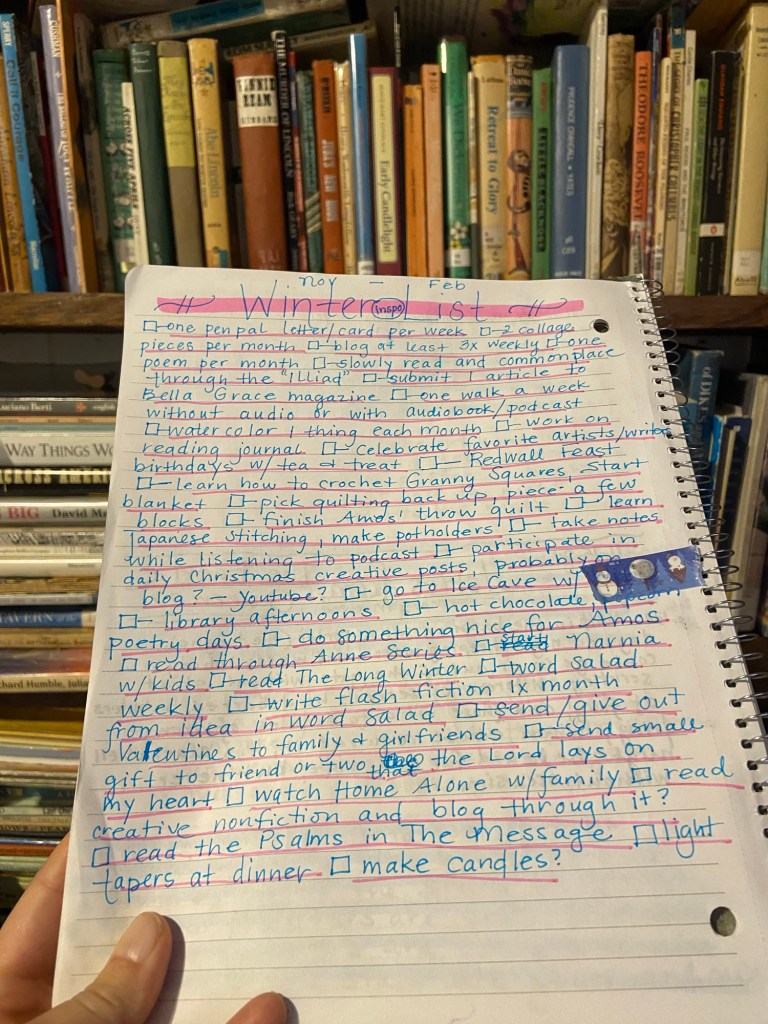 SPERRY
WINNIE REAM
Abe Lincoln
THE MURDER OF LINCOLN
Early Candlelight
Retreat to Glory
PRUDENCE CRANDALL
THEODORE ROOSEVELT
Luciano Berti
WAY THINGS WO
BIG David M
TAVERN
chard Humble, Julia
nov – Feb
Winter inspo List
☐ one penpal letter/card per week ☐ 2 collage
pieces per month ☐ blog at least 3x weekly ☐ one
poem per month ☐ slowly read and commonplace
through the "Illiad" ☐ submit 1 article to
Bella Grace magazine ☐ one walk a week
without audio or with audiobook/podcast
☐ watercolor 1 thing each month ☐ work on
reading journal ☐ celebrate favorite artists/write
birthdays w/ tea & treat ☐ Redwall Feast
☐ learn how to crochet Granny Squares, start
blanket ☐ pick quilting back up, piece a few
blocks ☐ finish Amos' throw quilt ☐ learn
Japanese stitching, make potholders ☐ take notes
while listening to podcast ☐ participate in
daily Christmas creative posts, probably on
blog? – Youtube? ☐ go to Ice Cave w/
☐ library afternoons ☐ hot chocolate, popcorn
poetry days ☐ do something nice for Amos
☐ read through Anne Series ☐ start Narnia
w/ kids ☐ read The Long Winter ☐ word salad
weekly ☐ write flash fiction 1x month
from idea in word salad ☐ send/give out
Valentines to family & girlfriends ☐ send small
gift to friend or two that the Lord lays on
my heart ☐ watch Home Alone w/family ☐ read
creative nonfiction and blog through it?
☐ read the Psalms in The Message ☐ light
tapers at dinner ☐ make candles?